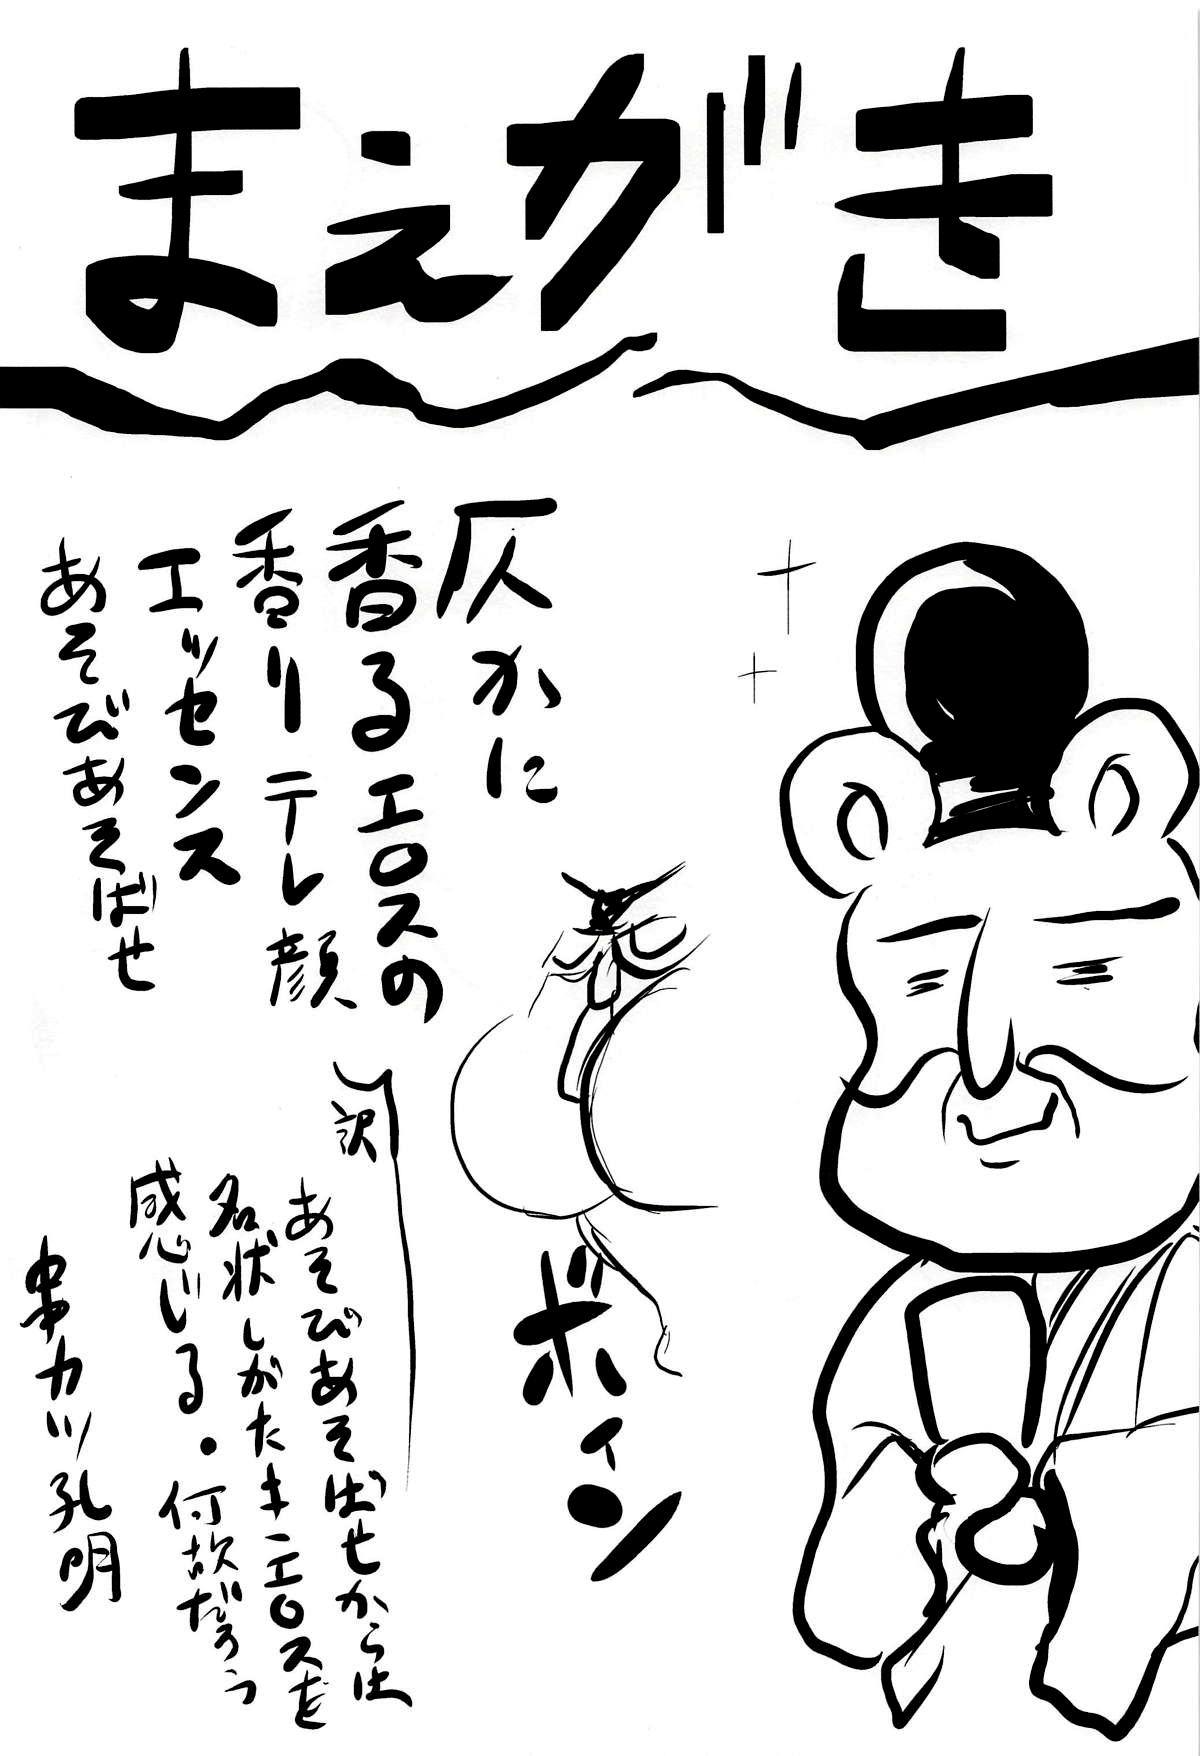 まえがき
仄かに
香るエロスの
香り テレ顔
エッセンス
あそびあそばせ
ボイン
訳
あそびあそばせからは
名状しがたきエロスを
感じる・何故だろう
串カツ孔明